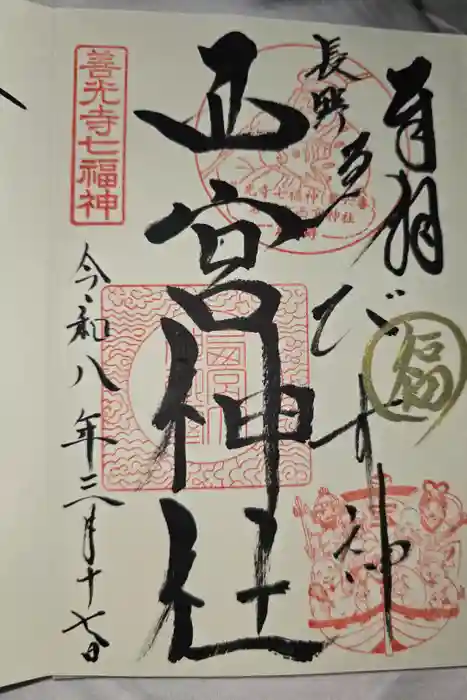 奉拝
長野
えびす神
福
西宮神社
善光寺七福神
令和八年三月十七日